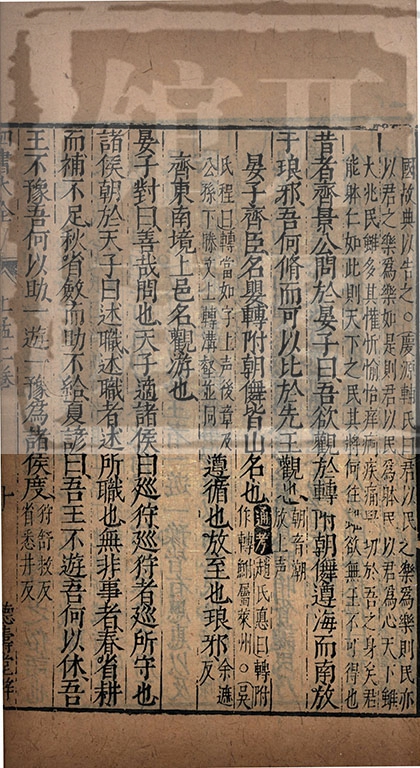 國故典以告之○慶源輔氏曰君以民之樂爲樂則民亦
以君之樂爲樂如是則君以民爲躰民以君爲心天下雖
大兆民雖多其懽忻愉怡痒痾疾痛舉切於吾之身矣君
能躰仁如此則天下之民其將何往哉欲無王不可得也
昔者齊景公問於晏子曰吾欲觀於轉附朝儛遵海而南放
于琅邪吾何脩而可以比於先王觀也朝音潮放上声
晏子齊臣名嬰轉附朝儛皆山名也通考趙氏惪曰轉附作轉鮒屬萊州○吳
氏程曰轉當如字上声後章及公孫下滕文上轉溝壑並同遵循也放至也琅邪余遮反
齊東南境上邑名觀游也
晏子對曰善哉問也天子適諸侯曰廵狩廵狩者廵所守也
諸侯朝於天子曰述職述職者述所職也無非事者春省耕
而補不足秋省斂而助不給夏諺曰吾王不遊吾何以休吾
王不豫吾何以助一遊一豫爲諸侯度狩舒救反省悉井反
四書大全
上孟二卷
十
德壽堂梓